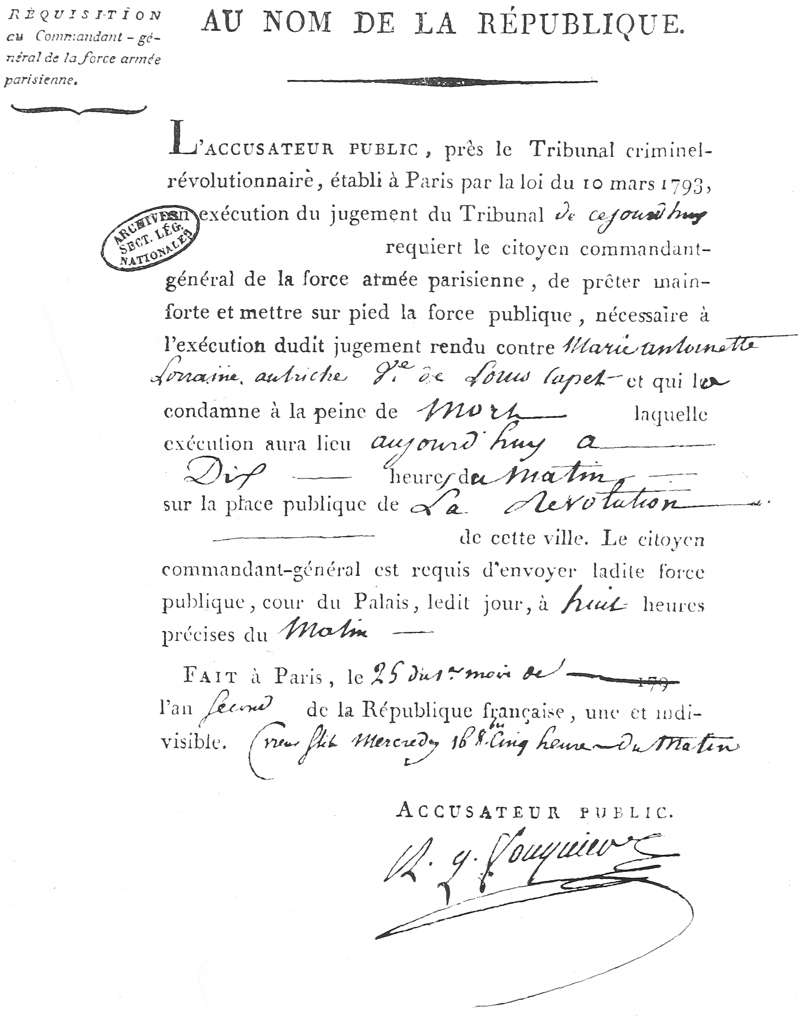 RÉQUISITION
au Commandant-gé-
néral de la force armée
parisienne.
AU NOM DE LA RÉPUBLIQUE.
L'ACCUSATEUR PUBLIC, près le Tribunal criminel-
révolutionnaire, établi à Paris par la loi du 10 mars 1793,
en exécution du jugement du Tribunal de cejourdhuy
ARCHIVES
SECT. LÉG.
NATIONALES
requiert le citoyen commandant-
général de la force armée parisienne, de prêter main-
forte et mettre sur pied la force publique, nécessaire à
l'exécution dudit jugement rendu contre Marie antoinette
Lorraine, autriche Ve de Louis Capet et qui la
condamne à la peine de Mort laquelle
exécution aura lieu aujourd'huy a
Dix heures du Matin
sur la place publique de La Revolution
de cette ville. Le citoyen
commandant-général est requis d'envoyer ladite force
publique, cour du Palais, ledit jour, à huit heures
précises du Matin
FAIT à Paris, le 25 du 1er mois de 179
l'an second de la République française, une et indi-
visible. (vieux stile Mercredy 16 8bre Cinq heures du Matin
ACCUSATEUR PUBLIC.
A. q. Fouquier